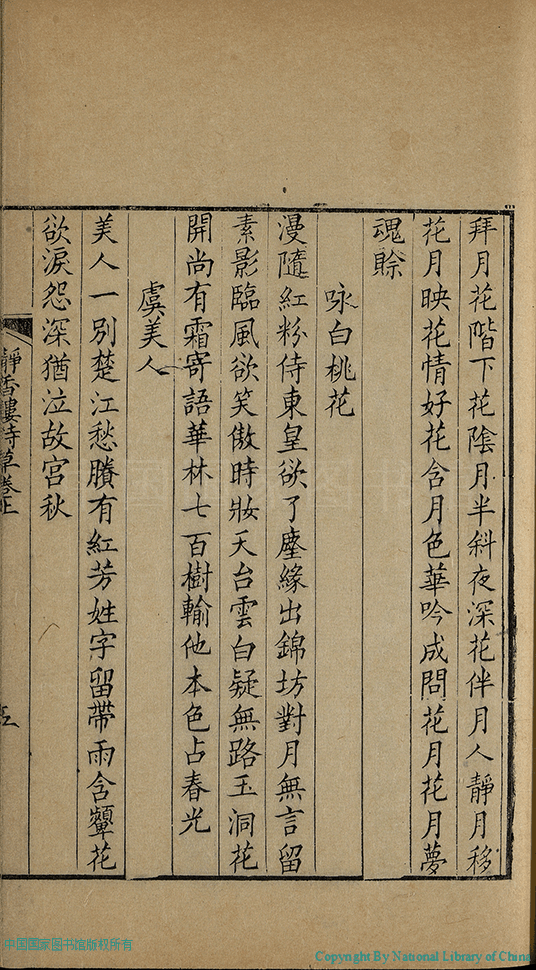 拜月花階下花陰月半斜夜深花伴月人靜月移
花月映花情好花含月色華吟成問花月花月夢
魂賒
咏白桃花
漫隨紅粉侍東皇欲了塵緣出錦坊對月無言留
素影臨風欲笑傲時妝天台雲白疑無路玉洞花
開尚有霜寄語華林七百樹輸他本色占春光
虞美人
美人一別楚江愁賸有紅芳姓字留帶雨含顰花
欲淚怨深猶泣故宮秋
靜香樓詩草卷上
五
中国国家图书馆版权所有
Copyright By National Library of China